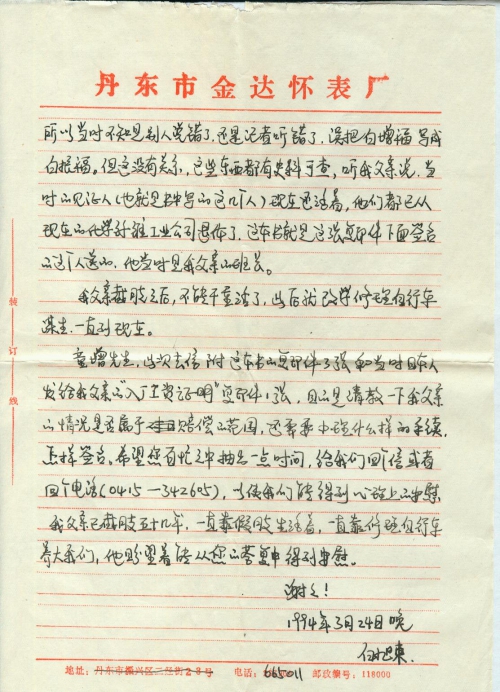 丹东市金达怀表厂
所以当时不知是别人说错了,还是记者听错了,误把白增福写成
白振福。但这没有关系,这些东西都有史料可查,听我父亲说,当
时的见证人(也就是书中写的这几个人)现在还活着,他们都已从
现在的化学纤维工业公司退休了,这本书就是这张复印件下面签名
的这个人送的,他当时是我父亲的班长。
我父亲截肢之后,不能干重活了,以后就改学修理自行车
谋生,一直到现在。
童增先生,此次去信附这本书的复印件3张和当时日本人
发给我父亲的"入厂工资证明"复印件1张,目的是请教一下我父亲
的情况是否属于赔偿的范围,还需要办理什么样的手续,
怎样签名。希望您百忙之中抽出一点时间,给我们回个信或者
回个电话(0415—342605),以使我们能得到心理上的安慰
我父亲已截肢五十几年,一直靠假肢生活着,一直靠修理自行车
养大我们,他盼望着能从您的答复中得到安慰。
谢谢!
1994年3月24日晚
白
地址:丹东市振兴区二经街28号 电话:665011 邮政编号:118000
装
订
线